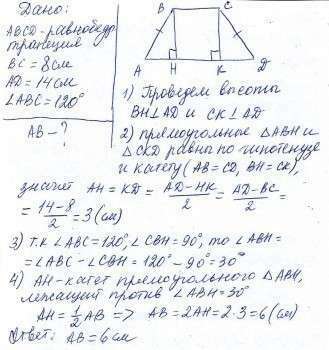 Дано:
ABCD - равнобедр.
трапеция
BC = 8см
AD = 14см
∠ABC = 120°
AB - ?
B C
A H K D
1) Проведем высоты
BH⊥AD и CK⊥AD
2) прямоугольные △ABH и
△CKD равны по гипотенузе
и катету (AB = CD, BH = CK),
значит AH = KD = (AD-HK)/2 = (AD-BC)/2 =
= (14-8)/2 = 3 (см)
3) Т.к ∠ABC = 120°, ∠CBH = 90°, то ∠ABH =
= ∠ABC - ∠CBH = 120° - 90° = 30°
4) AH - катет прямоугольного △ABH,
лежащий против ∠ABH = 30°
AH = 1/2 AB => AB = 2AH = 2·3 = 6 (см)
Ответ: AB = 6см